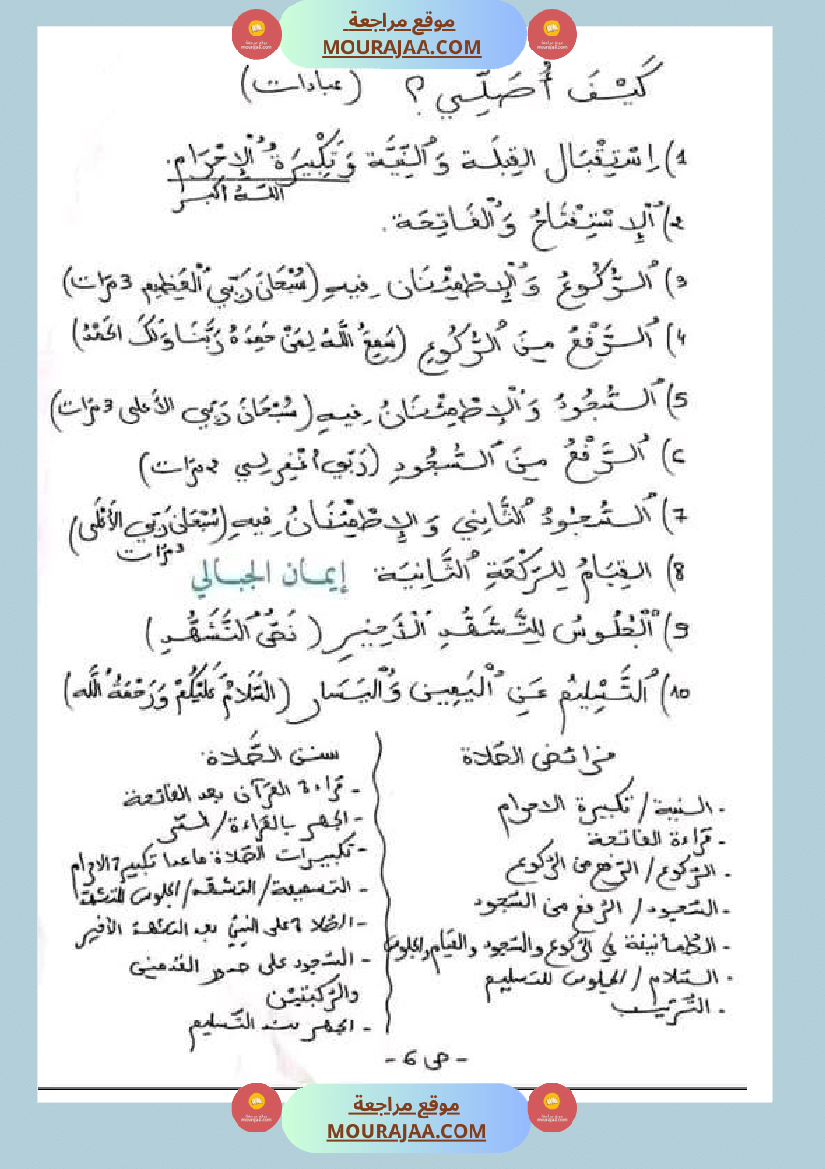 موقع مراجعة
MOURAJAA.COM
كَيْفَ أُصَلِّي ؟ (عبادات)
1) اِسْتِقْبَال القِبلَة وَالنِّيَّة وَتَكْبِيرَةُ الْإِحْرَامِ.
اللّه أكبر
2) الْإِسْتِفْتَاحُ وَالْفَاتِحَة.
3) الرُّكُوعُ وَالْإِطْمِئْنَان فِيهِ (سُبْحَانَ رَبِّي الْعَظِيم 3 مَرّات)
4) الرَّفْعُ مِنَ الرُّكُوعِ (سَمِعَ اللَّهُ لِمَنْ حَمِدَهُ رَبَّنَا وَلَكَ الحَمْدُ)
5) السُّجُودُ وَالْإِطْمِئْنَانُ فِيهِ (سُبْحَانَ رَبِّي الأَعلى 3 مَرّات)
6) الرَّفْعُ مِنَ السُّجُودِ (رَبِّي اغْفِر لِي 2 مرّات)
7) السُّجُودُ الثَّانِي وَالإِطْمِئْنَانُ فِيهِ (سُبْحَانَ رَبِّي الأَعْلَى)
3 مرّات
8) القِيَامُ لِلرَّكْعَةِ الثَّانِيَة
إيمان الجبالي
9) الْجُلُوسُ لِلتَّشَهُّدِ الْأَخِيرِ ( نَصُّ التَّشَهُّدِ)
10) التَّسْلِيمُ عَنِ الْيَمِينِ وَالْيَسَارِ (السَّلَامُ عَلَيْكُمْ وَرَحْمَةُ اللَّه)
فرائض الصّلاة
- النية / تكبيرة الاحرام
- قراءة الفاتحة
- الرّكوع / الرّفع من الرّكوع
- السّجود / الرّفع من السّجود
- الطّمأنينة في الرّكوع والسّجود والقيام والجلوس
- السّلام / الجلوس للتسليم
- التّرتيب
سنن الصَّلاة
- قراءة القرآن بعد الفاتحة
- الجهر بالقراءة / السّرّ
- تكبيرات الصّلاة ماعدا تكبيرة الاحرام
- التسميعة / التشهّد / الجلوس للتشهّد
- الصّلاة على النبيّ بعد التشهّد الأخير
- السّجود على صدور القدمين
والرّكبتين
- الجهر عند التّسليم
- ص 6 -
موقع مراجعة
MOURAJAA.COM